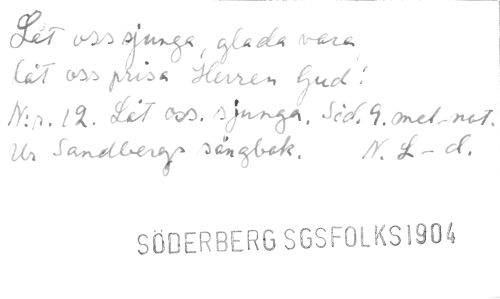 Låt oss sjunga, glada vara,
låt oss prisa Herren Gud!
N:r. 12. Låt oss. sjunga. Sid. 9. mel-not.
Ur Sandbergs sångbok. N. L-d.
SÖDERBERG SGSFOLKS1904